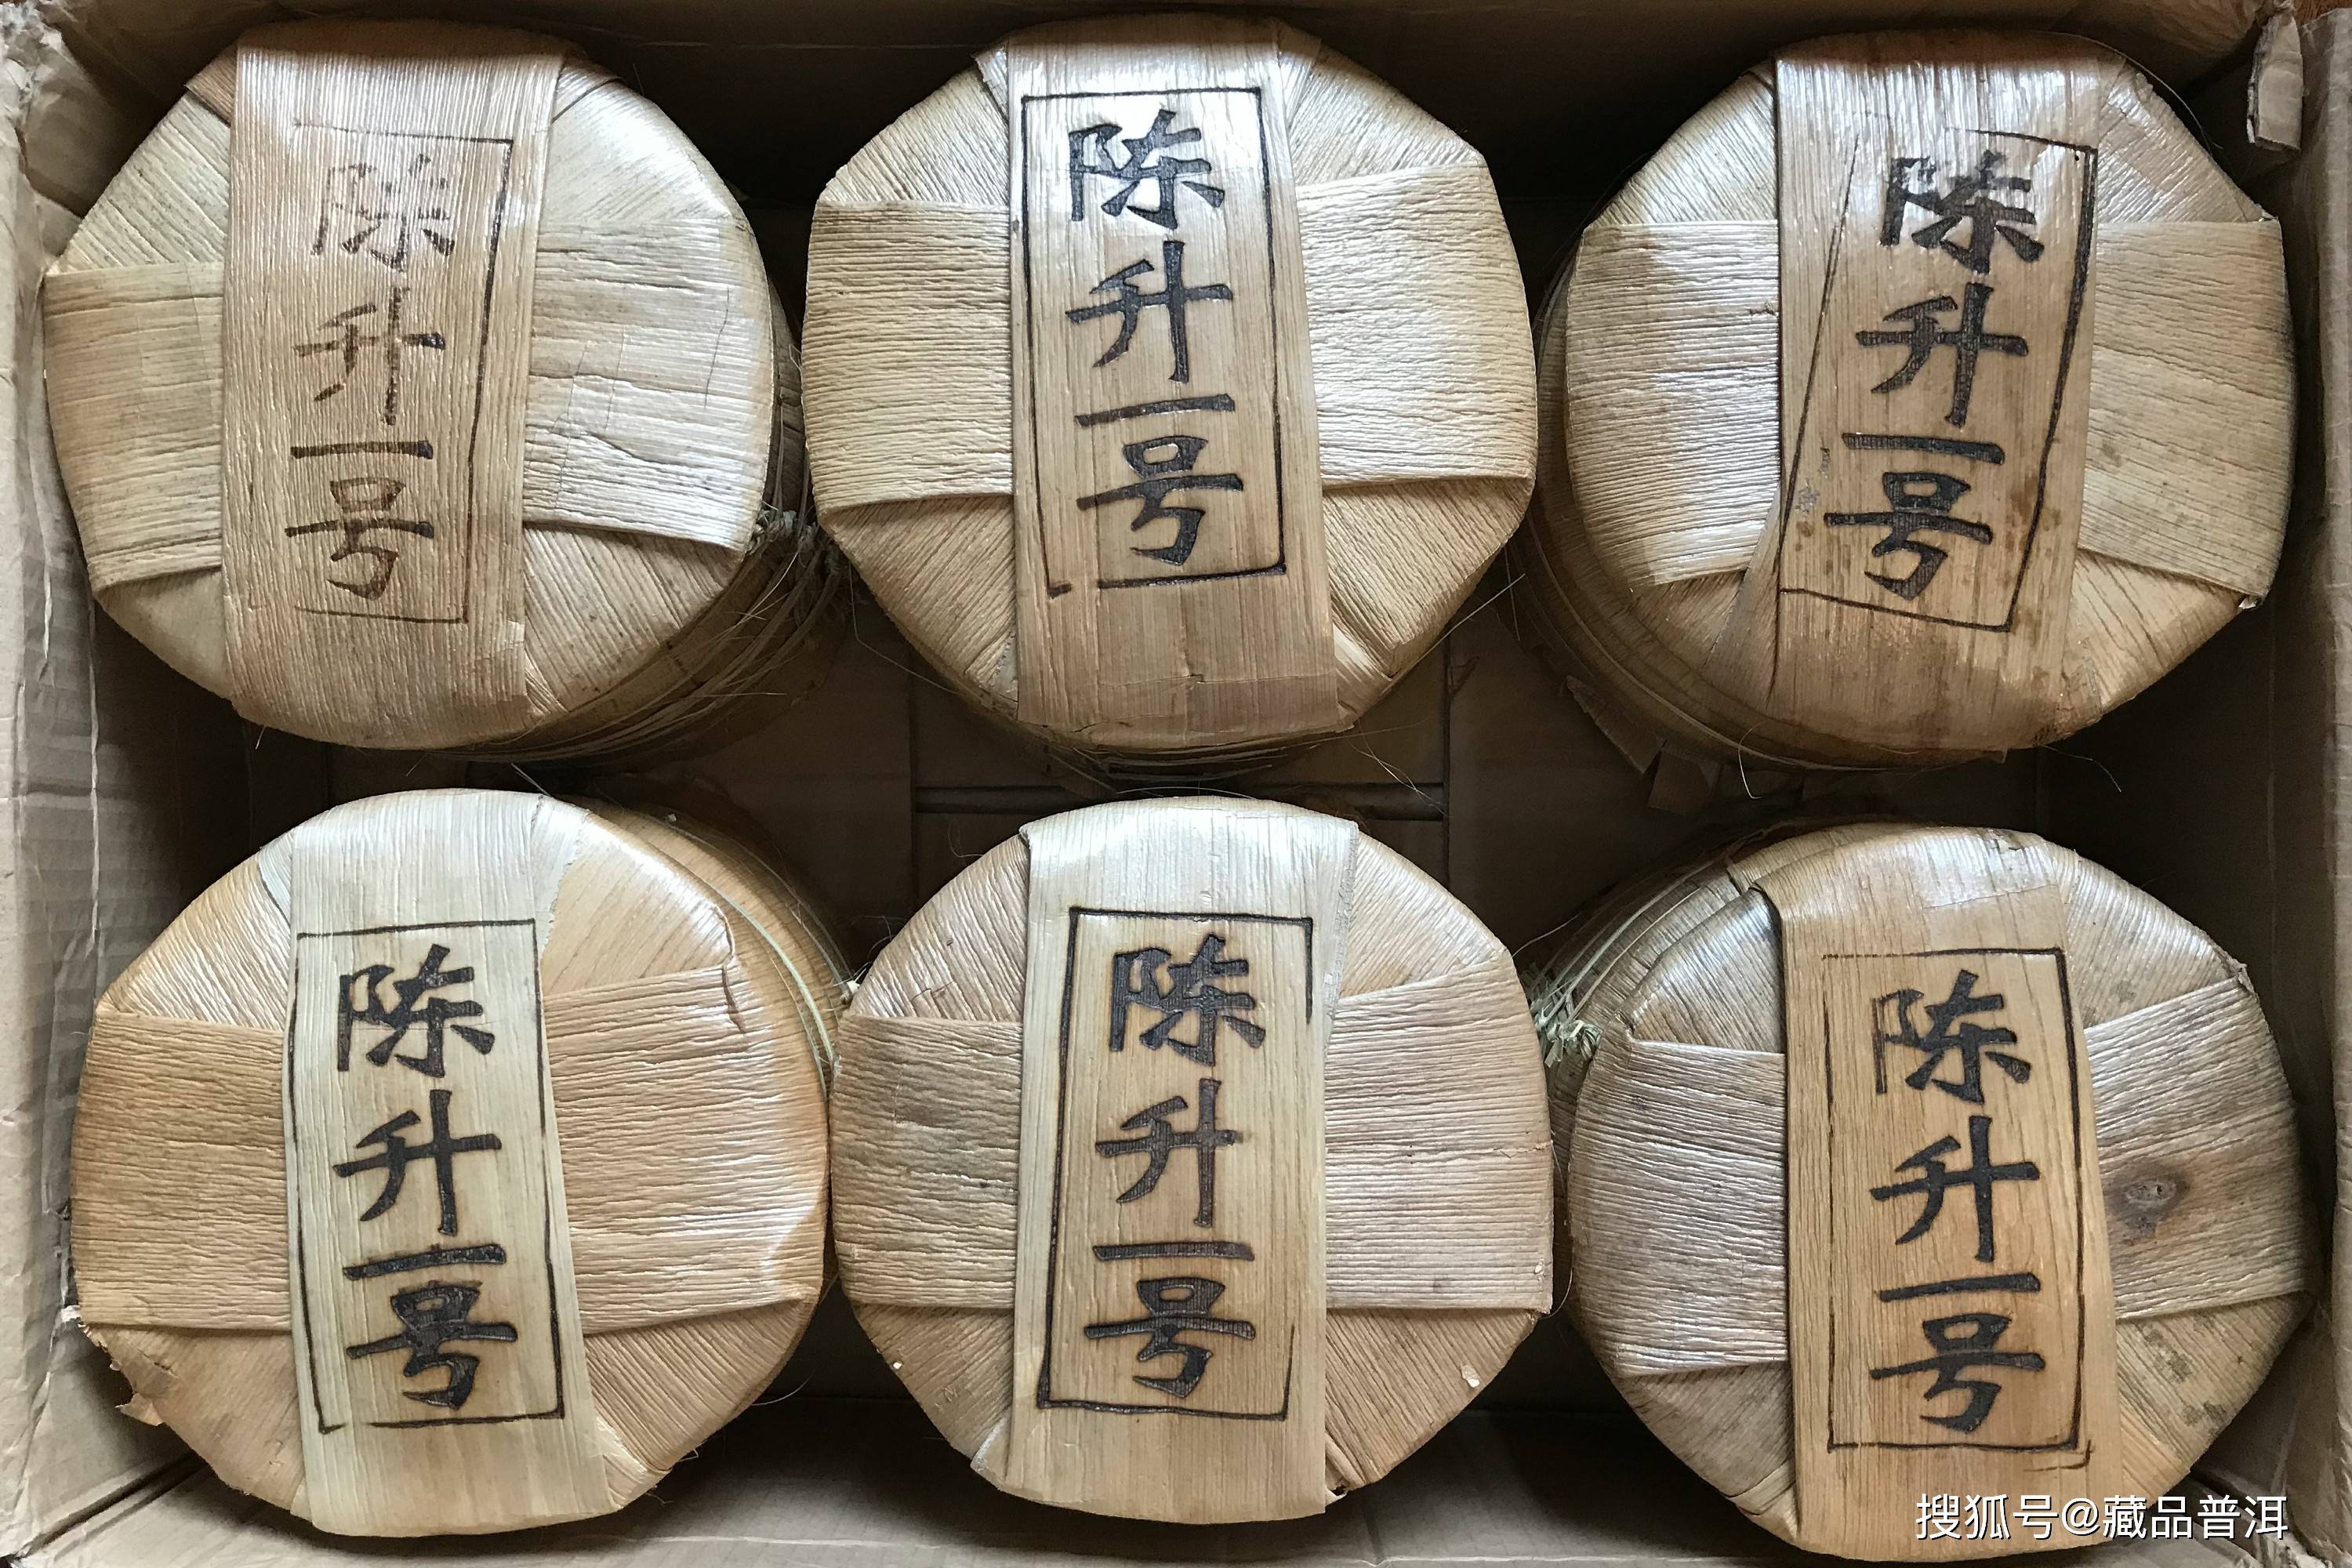 陈升一号
陈升一号
陈升一号
陈升一号
陈升一号
陈升一号
搜狐号@藏品普洱